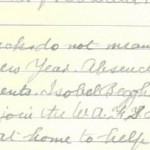 cks do not mean
New Year. Absence
ents. Isobel Beggh
join the W.A.
at home to help